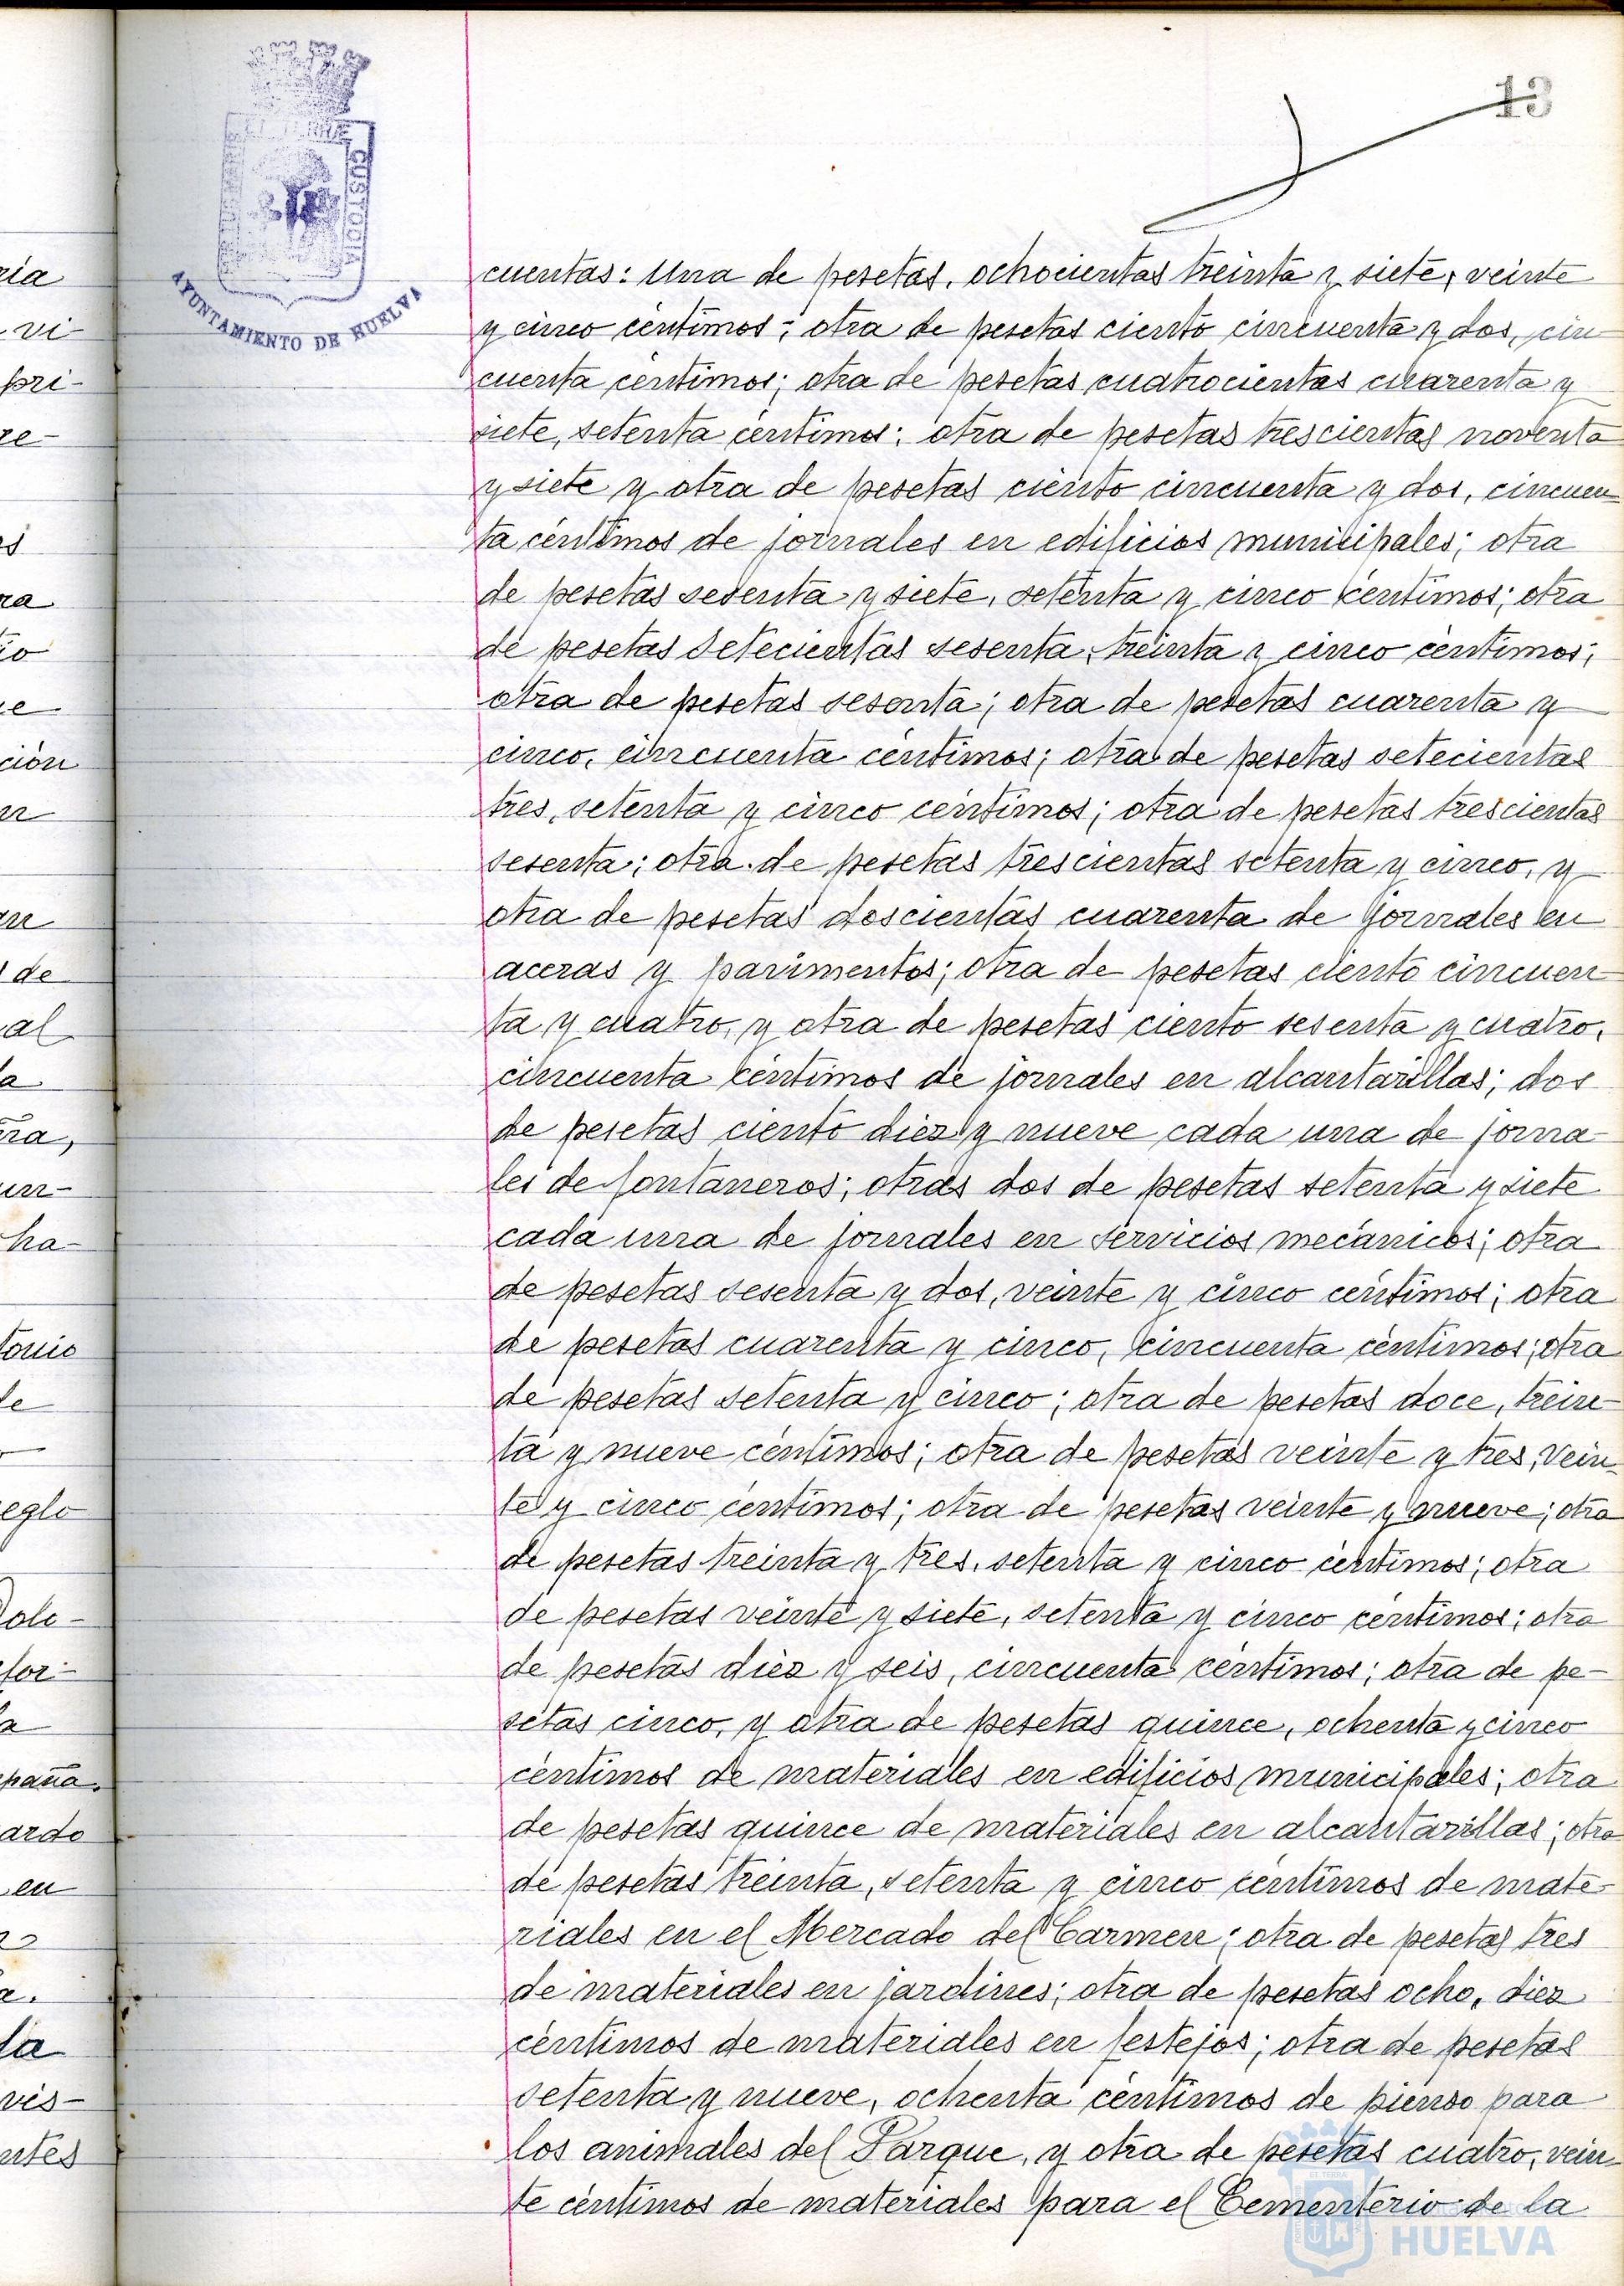 13
ET TERRÆ
CUSTODIA
AYUNTAMIENTO DE HUELVA
cuentas: Una de pesetas, ochocientas treinta y siete, veinte
y cinco céntimos; otra de pesetas ciento cincuenta y dos, cin
cuenta céntimos; otra de pesetas cuatrocientas cuarenta y
siete, setenta céntimos; otra de pesetas trescientas noventa
y siete y otra de pesetas ciento cincuenta y dos, cincuen
ta céntimos de jornales en edificios municipales; otra
de pesetas sesenta y siete, setenta y cinco céntimos; otra
de pesetas setecientas sesenta, treinta y cinco céntimos;
otra de pesetas sesenta; otra de pesetas cuarenta y
cinco, cincuenta céntimos; otra de pesetas setecientas
tres, setenta y cinco céntimos; otra de pesetas trescientas
sesenta; otra de pesetas trescientas setenta y cinco, y
otra de pesetas doscientas cuarenta de jornales en
aceras y pavimentos; otra de pesetas ciento cincuen
ta y cuatro, y otra de pesetas ciento sesenta y cuatro,
cincuenta céntimos de jornales en alcantarillas; dos
de pesetas ciento diez y nueve cada una de jorna-
les de fontaneros; otras dos de pesetas setenta y siete
cada una de jornales en servicios mecánicos; otra
de pesetas sesenta y dos, veinte y cinco céntimos; otra
de pesetas cuarenta y cinco, cincuenta céntimos; otra
de pesetas setenta y cinco; otra de pesetas doce, trein-
ta y nueve céntimos; otra de pesetas veinte y tres, vein
te y cinco céntimos; otra de pesetas veinte y nueve; otra
de pesetas treinta y tres, setenta y cinco céntimos; otra
de pesetas veinte y siete, setenta y cinco céntimos; otra
de pesetas diez y seis, cincuenta céntimos; otra de pe-
setas cinco, y otra de pesetas quince, ochenta y cinco
céntimos de materiales en edificios municipales; otra
de pesetas quince de materiales en alcantarillas; otra
de pesetas treinta, setenta y cinco céntimos de mate-
riales en el Mercado del Carmen; otra de pesetas tres
de materiales en jardines; otra de pesetas ocho, diez
céntimos de materiales en festejos; otra de pesetas
setenta y nueve, ochenta céntimos de pienso para
los animales del Parque, y otra de pesetas cuatro, vein-
te céntimos de materiales para el Cementerio de la
HUELVA
ria
vi
pri-
re-
ra
io
ción
de
al
la
ra,
un-
ha-
tonio
eglo
Dolo-
for-
paña.
ardo
en
la
vis-
ntes